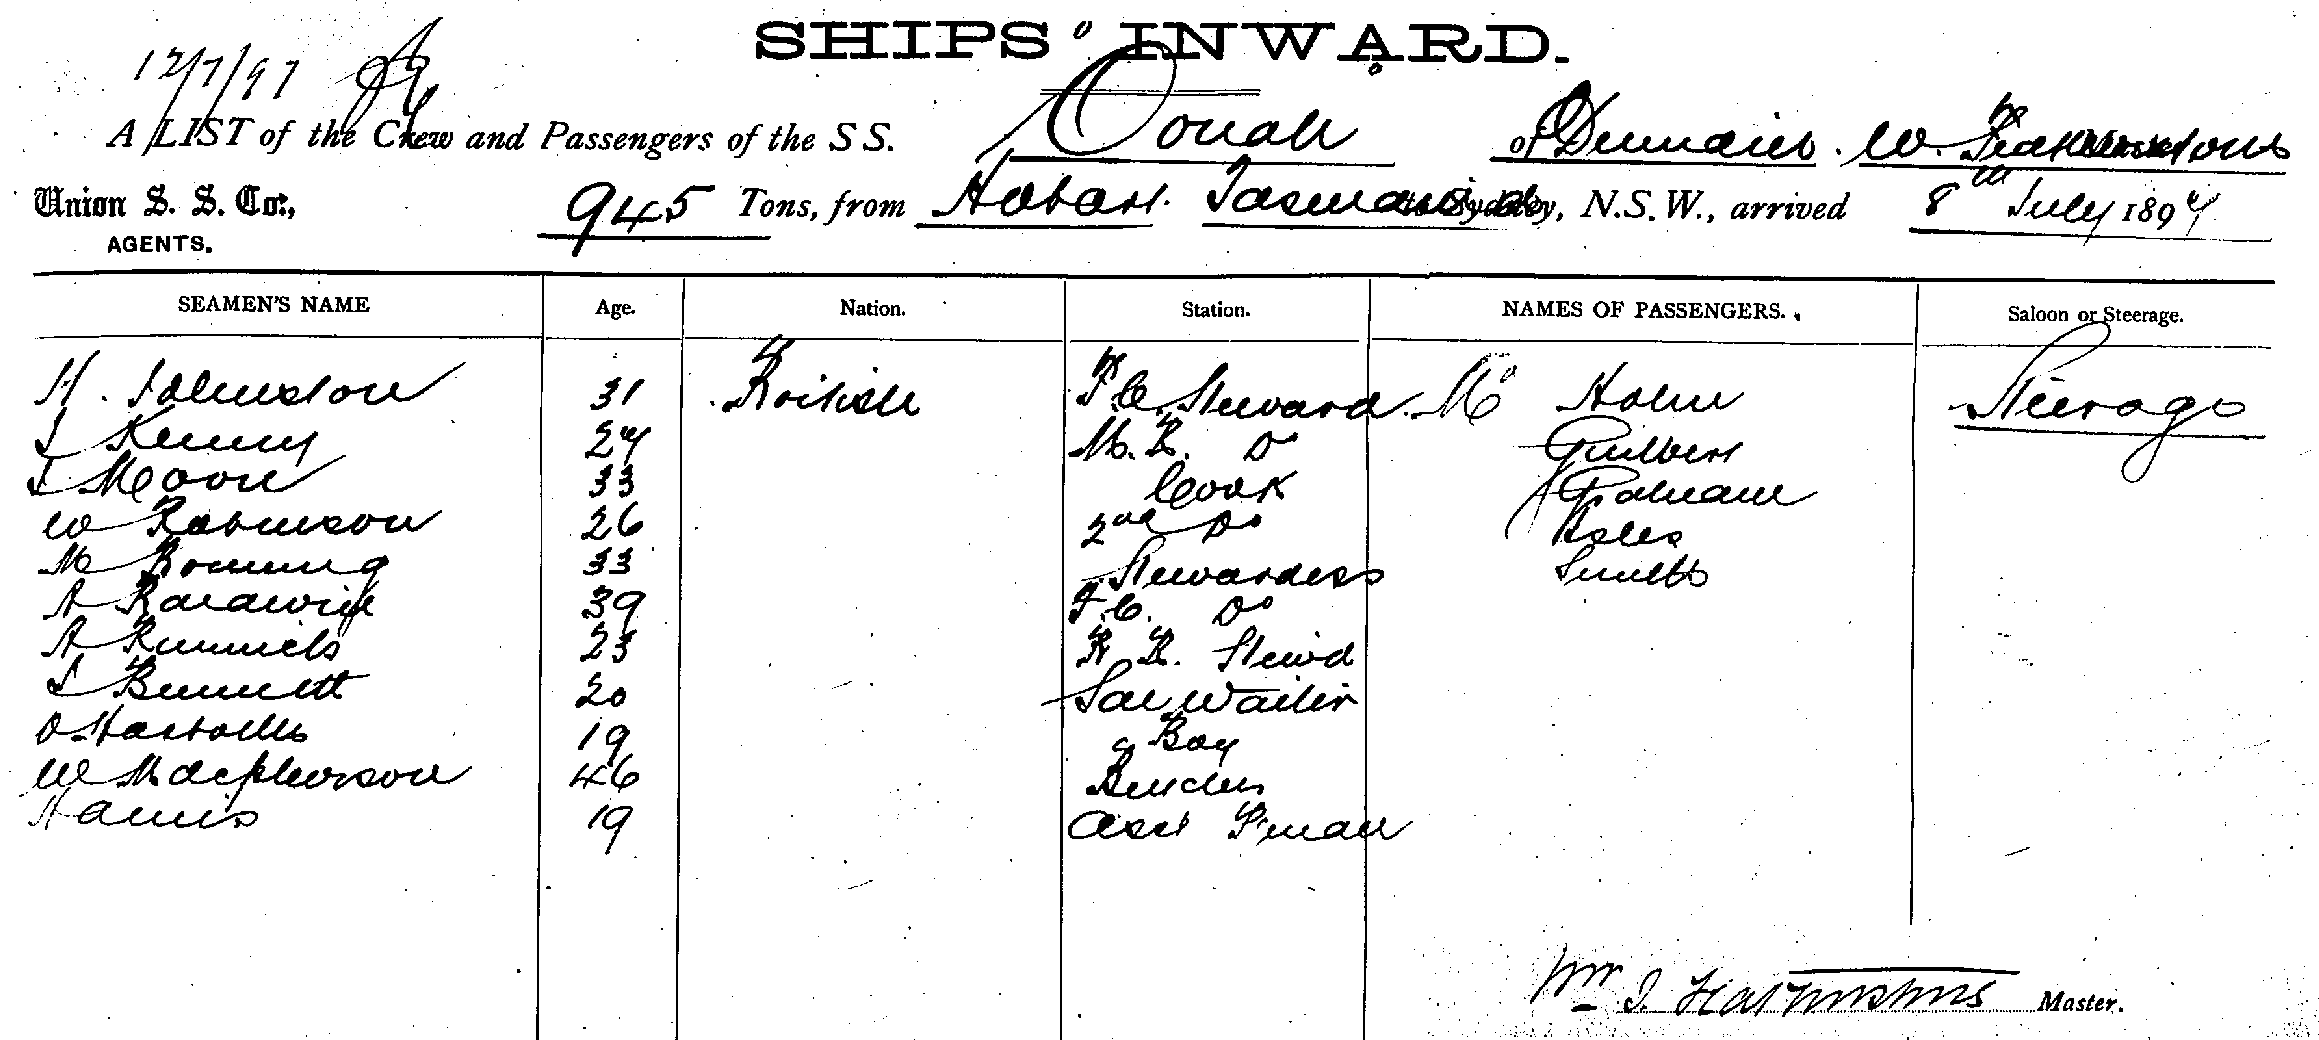 SHIPS' INWARD.
12/7/97
A LIST of the Crew and Passengers of the S S. Oonah of Dunedin. W.
Union S. S. Co., 945 Tons, from Hobart Tasmania to Sydney, N.S.W., arrived 8th July 1897
AGENTS.
SEAMEN'S NAME Age. Nation. Station. NAMES OF PASSENGERS. Saloon or Steerage.
H. Johnston 31 British F.C. Steward Mr Holm Steerage
J Kenny 27 M. R. Do Guilbert
J Moore 33 Cook Graham
W Robinson 26 2nd Do
M 33 Stewardess Smith
A 39 F.C. Do
A 23 B. R. Stewd
J Bennett 20 Sal Waiter
O 19 Boy
W Macpherson 46
Harris 19 Asst P'man
Wm J. Master.